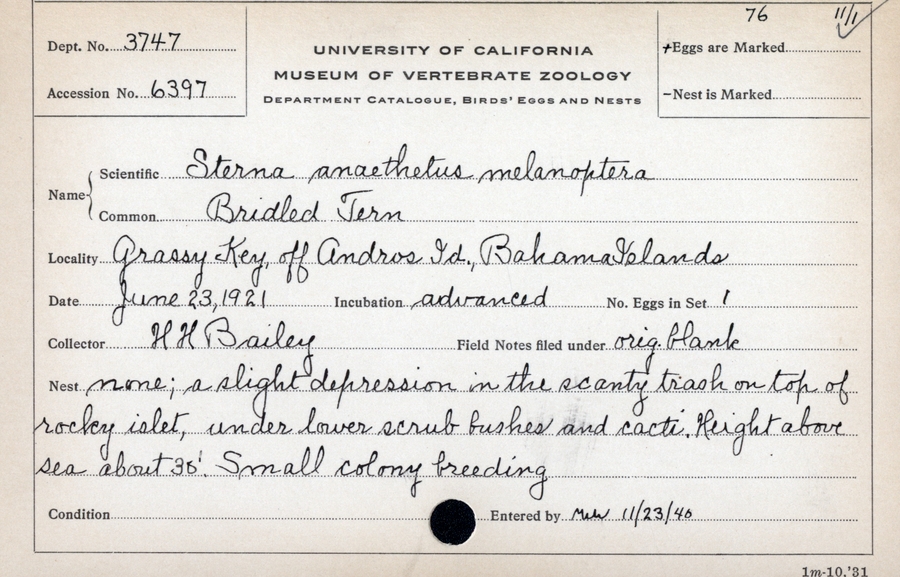 76 11/1
Dept. No. 3747
UNIVERSITY OF CALIFORNIA
+Eggs are Marked
MUSEUM OF VERTEBRATE ZOOLOGY
Accession No. 6397
DEPARTMENT CATALOGUE, BIRDS' EGGS AND NESTS
-Nest is Marked
Name
Scientific Sterna anaethetus melanoptera
Common Bridled Tern
Locality Grassy Key, off Andros Id., Bahama Islands
Date June 23, 1921 Incubation advanced No. Eggs in Set 1
Collector H H Bailey Field Notes filed under orig. blank
Nest none; a slight depression in the scanty trash on top of
rocky islet, under lower scrub bushes and cacti. Height above
sea about 30'. Small colony breeding
Condition Entered by 11/23/40
1m-10,'31